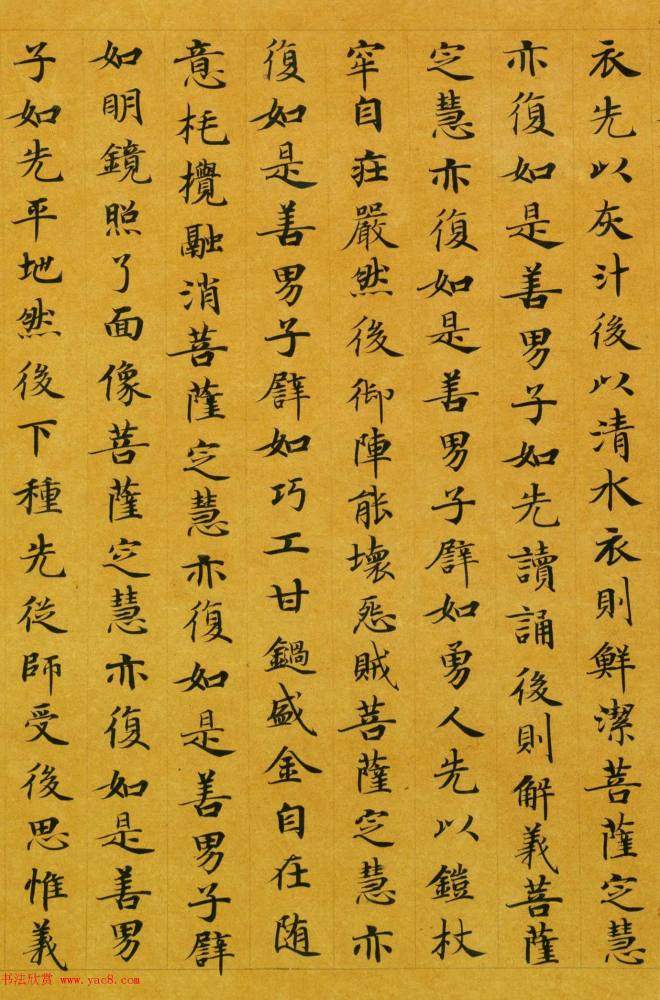 衣先以灰汁後以清水衣則鮮潔菩薩定慧
亦復如是善男子如先讀誦後則解義菩薩
定慧亦復如是善男子譬如勇人先以鎧杖
牢自莊嚴然後御陣能壞惡賊菩薩定慧亦
復如是善男子譬如巧工甘鍋盛金自在随
意托攪融消菩薩定慧亦復如是善男子譬
如明鏡照了面像菩薩定慧亦復如是善男
子如先平地然後下種先從師受後思惟義
书法欣赏 www.yac8.com